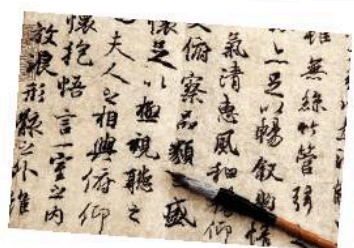 雖無絲竹管弦
亦足以暢敘幽情
氣清惠風和暢仰
大俯察品類盛
懷足以極視聽之
夫人之相與俯仰
懷抱悟言一室之內
放浪形骸之外雖